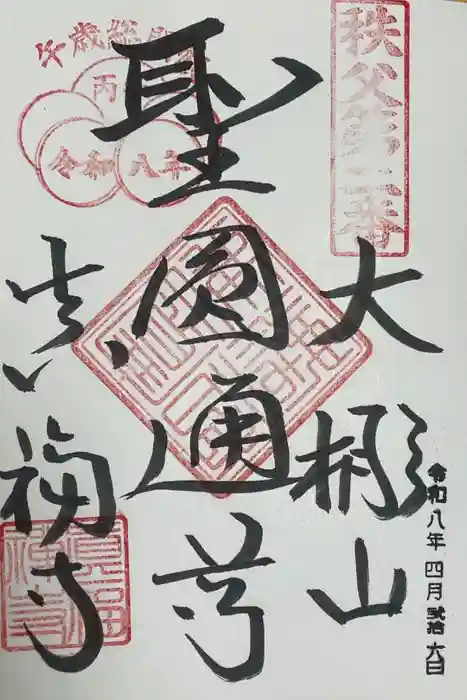 秩父第二番
大棚山
聖圓通尊
真福寺
午歳総
丙
令和八年
令和八年四月弐拾六日